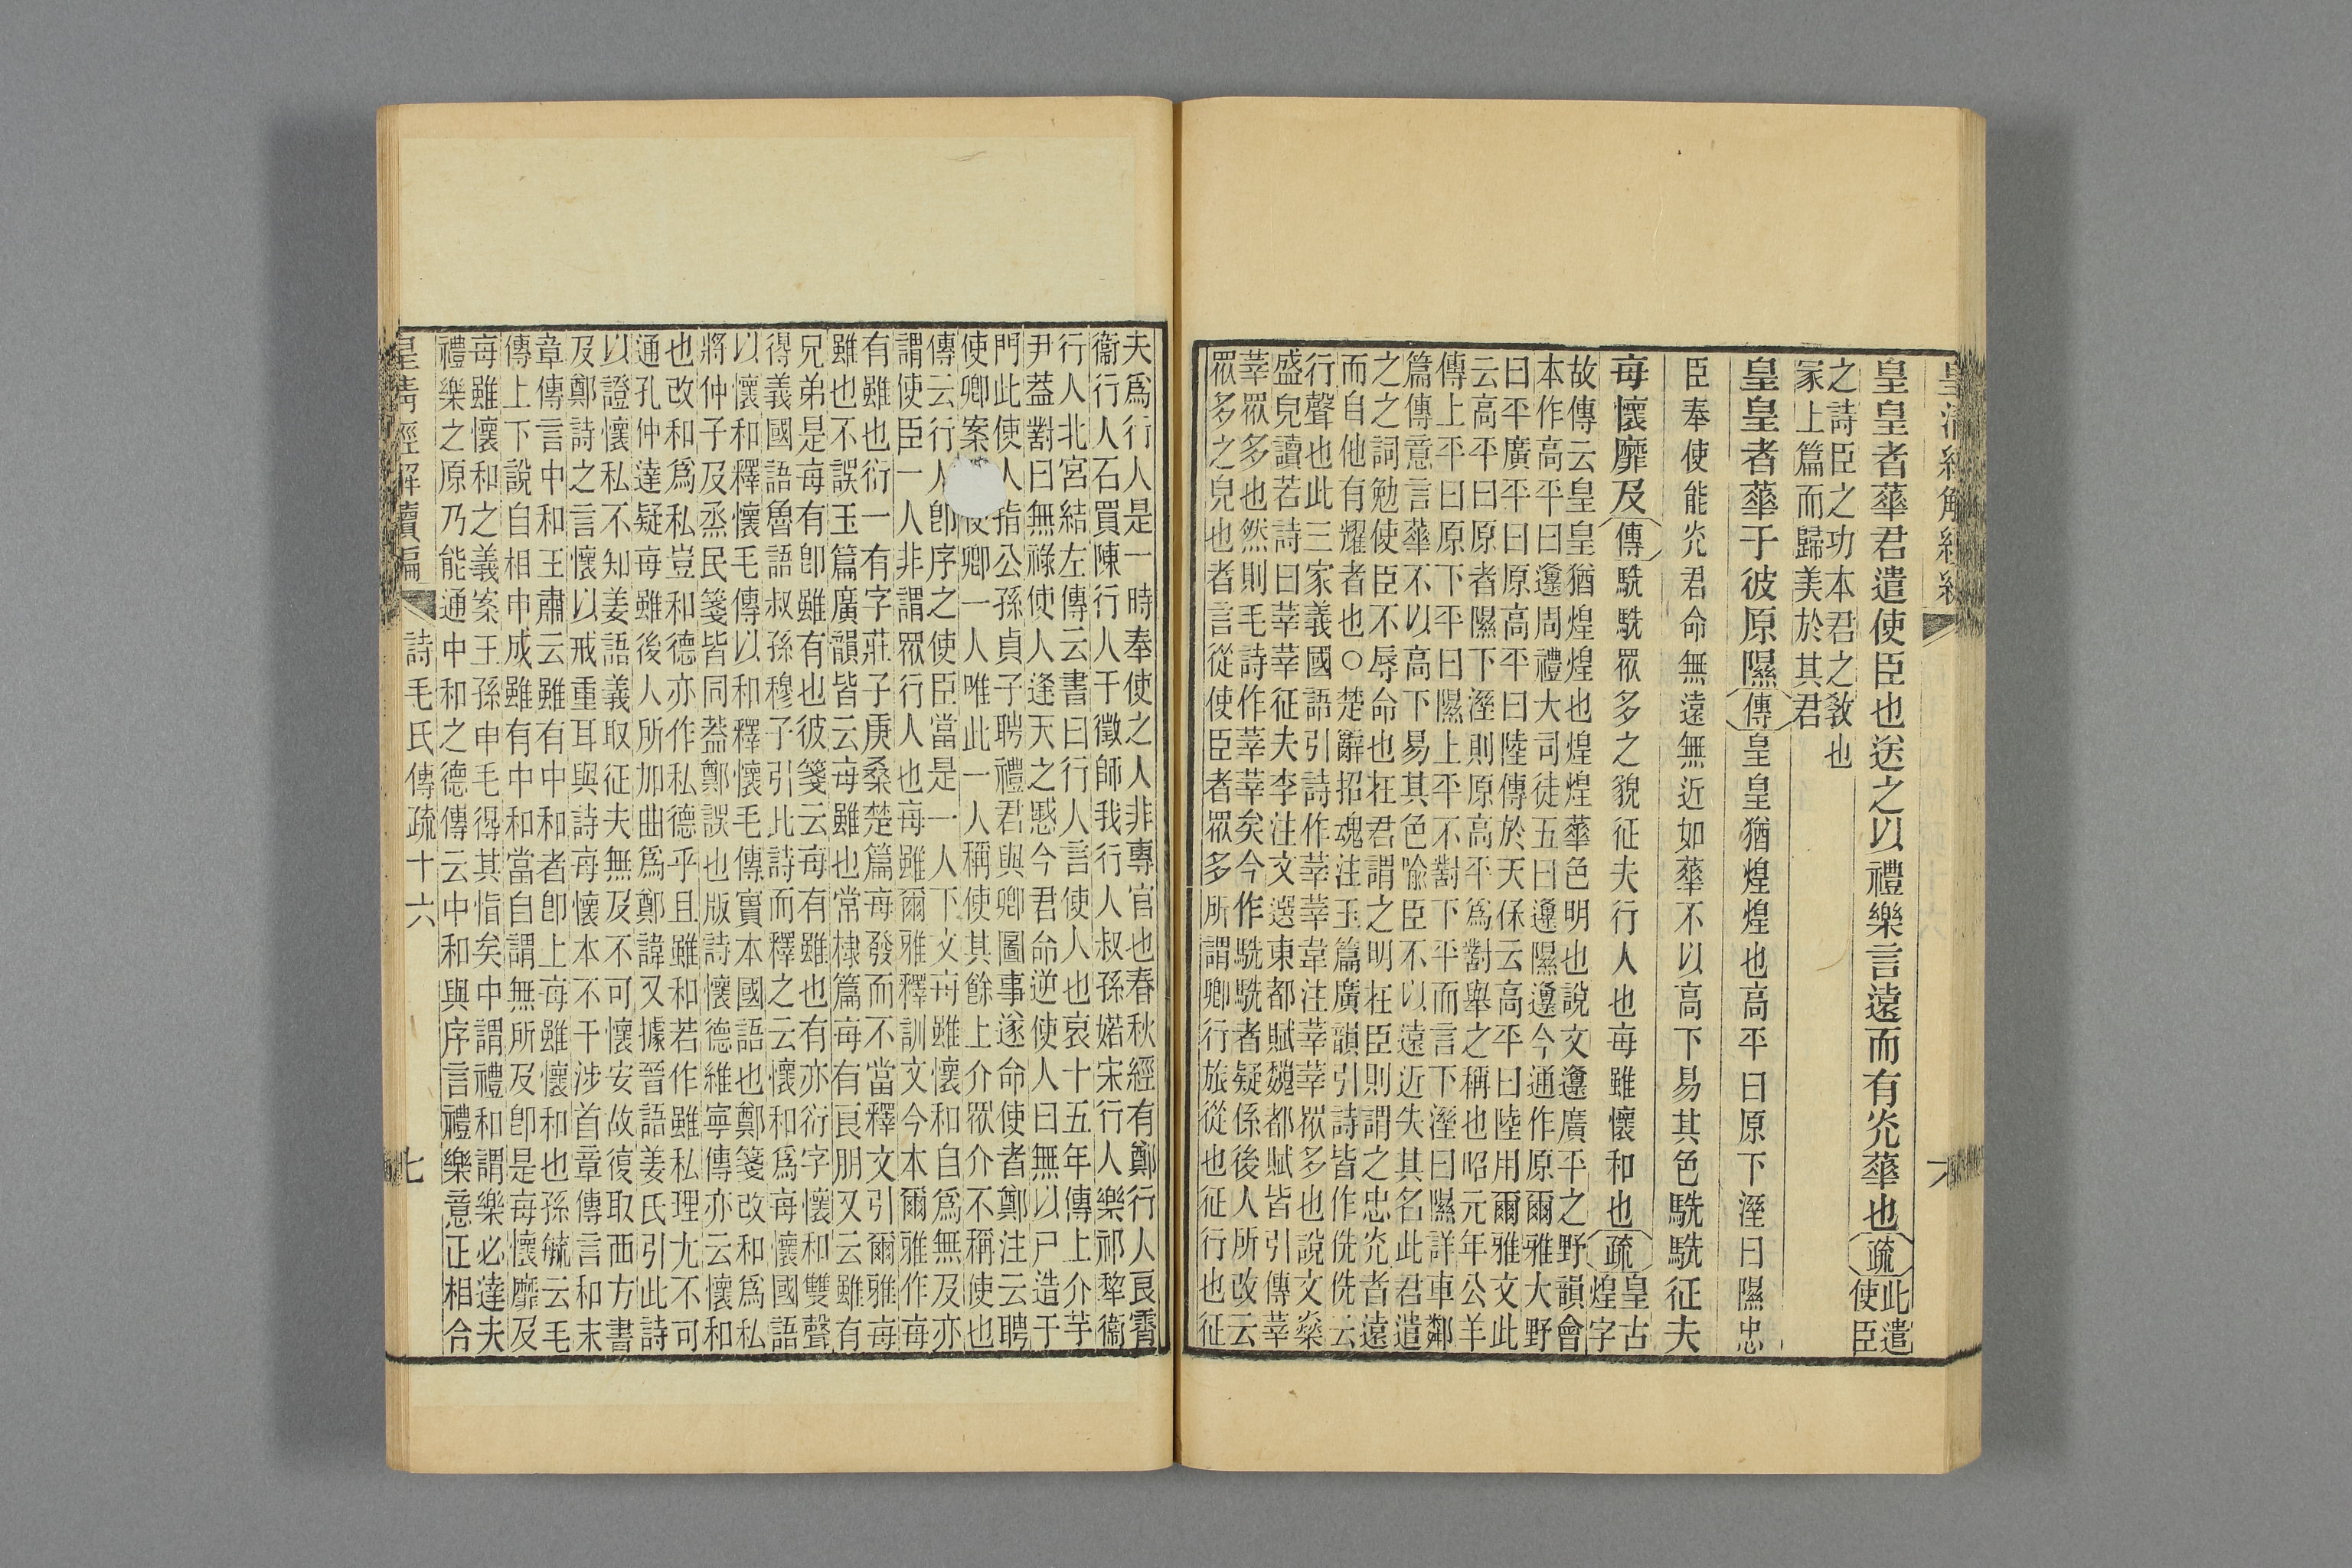 皇皇者蕐君遣使臣也送之以禮樂言遠而有光蕐也疏此遣
使臣
之詩臣之功本君之教也
家上篇而歸美於其君
皇皇者蕐于彼原隰傳皇皇猶煌煌也高平曰原下溼曰隰忠
臣奉使能光君命無遠無近如蕐不以高下易其色駪駪征夫
每懷靡及傳駪駪眾多之貌征夫行人也每雖懷和也疏皇古
煌字
故傳云皇皇猶煌煌也煌煌蕐色明也說文邍廣平之野韻會
本作高平曰邍周禮大司徒五曰邍隰邍今通作原爾雅大野
曰平廣平曰原高平曰陸傳於天保云高平曰陸用爾雅文此
云高平曰原者隰下溼則原高平爲對舉之稱也昭元年公羊
傳上平曰原下平曰隰上平不對下平而言下溼曰隰詳車鄰
篇傳意言蕐不以高下易其色喻臣不以遠近失其名此君遣
之之詞勉使臣不辱命也在君謂之明在臣則謂之忠光者遠
而自他有耀者也○楚辭招魂注玉篇廣韻引詩皆作侁侁云
行聲也此三家義國語引詩作莘莘韋注莘莘眾多也說文燊
盛皃讀若詩曰莘莘征夫李注文選東都賦魏都賦皆引傳莘
莘眾多也然則毛詩作莘莘矣今作駪駪者疑係後人所改云
眾多之皃也者言從使臣者眾多所謂卿行旅從也征行也征
夫爲行人是一時奉使之人非專官也春秋經有鄭行人良霄
衞行人石買陳行人干徵師我行人叔孫婼宋行人樂祁犂衞
行人北宮結左傳云書曰行人言使人也哀十五年傳上介芋
尹葢對曰無祿使人逢天之慼今君命逆使人曰無以尸造于
門此使人指公孫貞子聘禮君與卿圖事遂命使者鄭注云聘
使卿案使卿一人唯此一人稱使其餘上介眾介不稱使也
傳云行人卽序之使臣當是一人下文每雖懷和自爲無及亦
謂使臣一人非謂眾行人也每雖爾雅釋訓文今本爾雅作每
有雖也衍一有字莊子庚桑楚篇每發而不當釋文引爾雅每
雖也不誤玉篇廣韻皆云每雖也常棣篇每有良朋又云雖有
兄弟是每有卽雖有也彼箋云每有雖也有亦衍字懷和雙聲
得義國語魯語叔孫穆子引此詩而釋之云懷和爲每懷國語
以懷和釋懷毛傳以和釋懷毛傳實本國語也鄭箋改和爲私
將仲子及烝民箋皆同葢鄭誤也版詩懷德維寧傳亦云懷和
也改和爲私豈和德亦作私德乎且雖和若作雖私理尤不可
通孔仲達疑每雖後人所加曲爲鄭諱又據晉語姜氏引此詩
以證懷私不知姜語義取征夫無及不可懷安故復取西方書
及鄭詩之言懷以戒重耳與詩每懷本不干涉首章傳言和末
章傳言中和王肅云雖有中和者卽上每雖懷和也孫毓云毛
傳上下說自相申成雖有中和當自謂無所及卽是每懷靡及
每雖懷和之義案王孫申毛得其恉矣中謂禮和謂樂必達夫
禮樂之原乃能通中和之德傳云中和與序言禮樂意正相合
皇清經解續編 詩毛氏傳疏十六 七